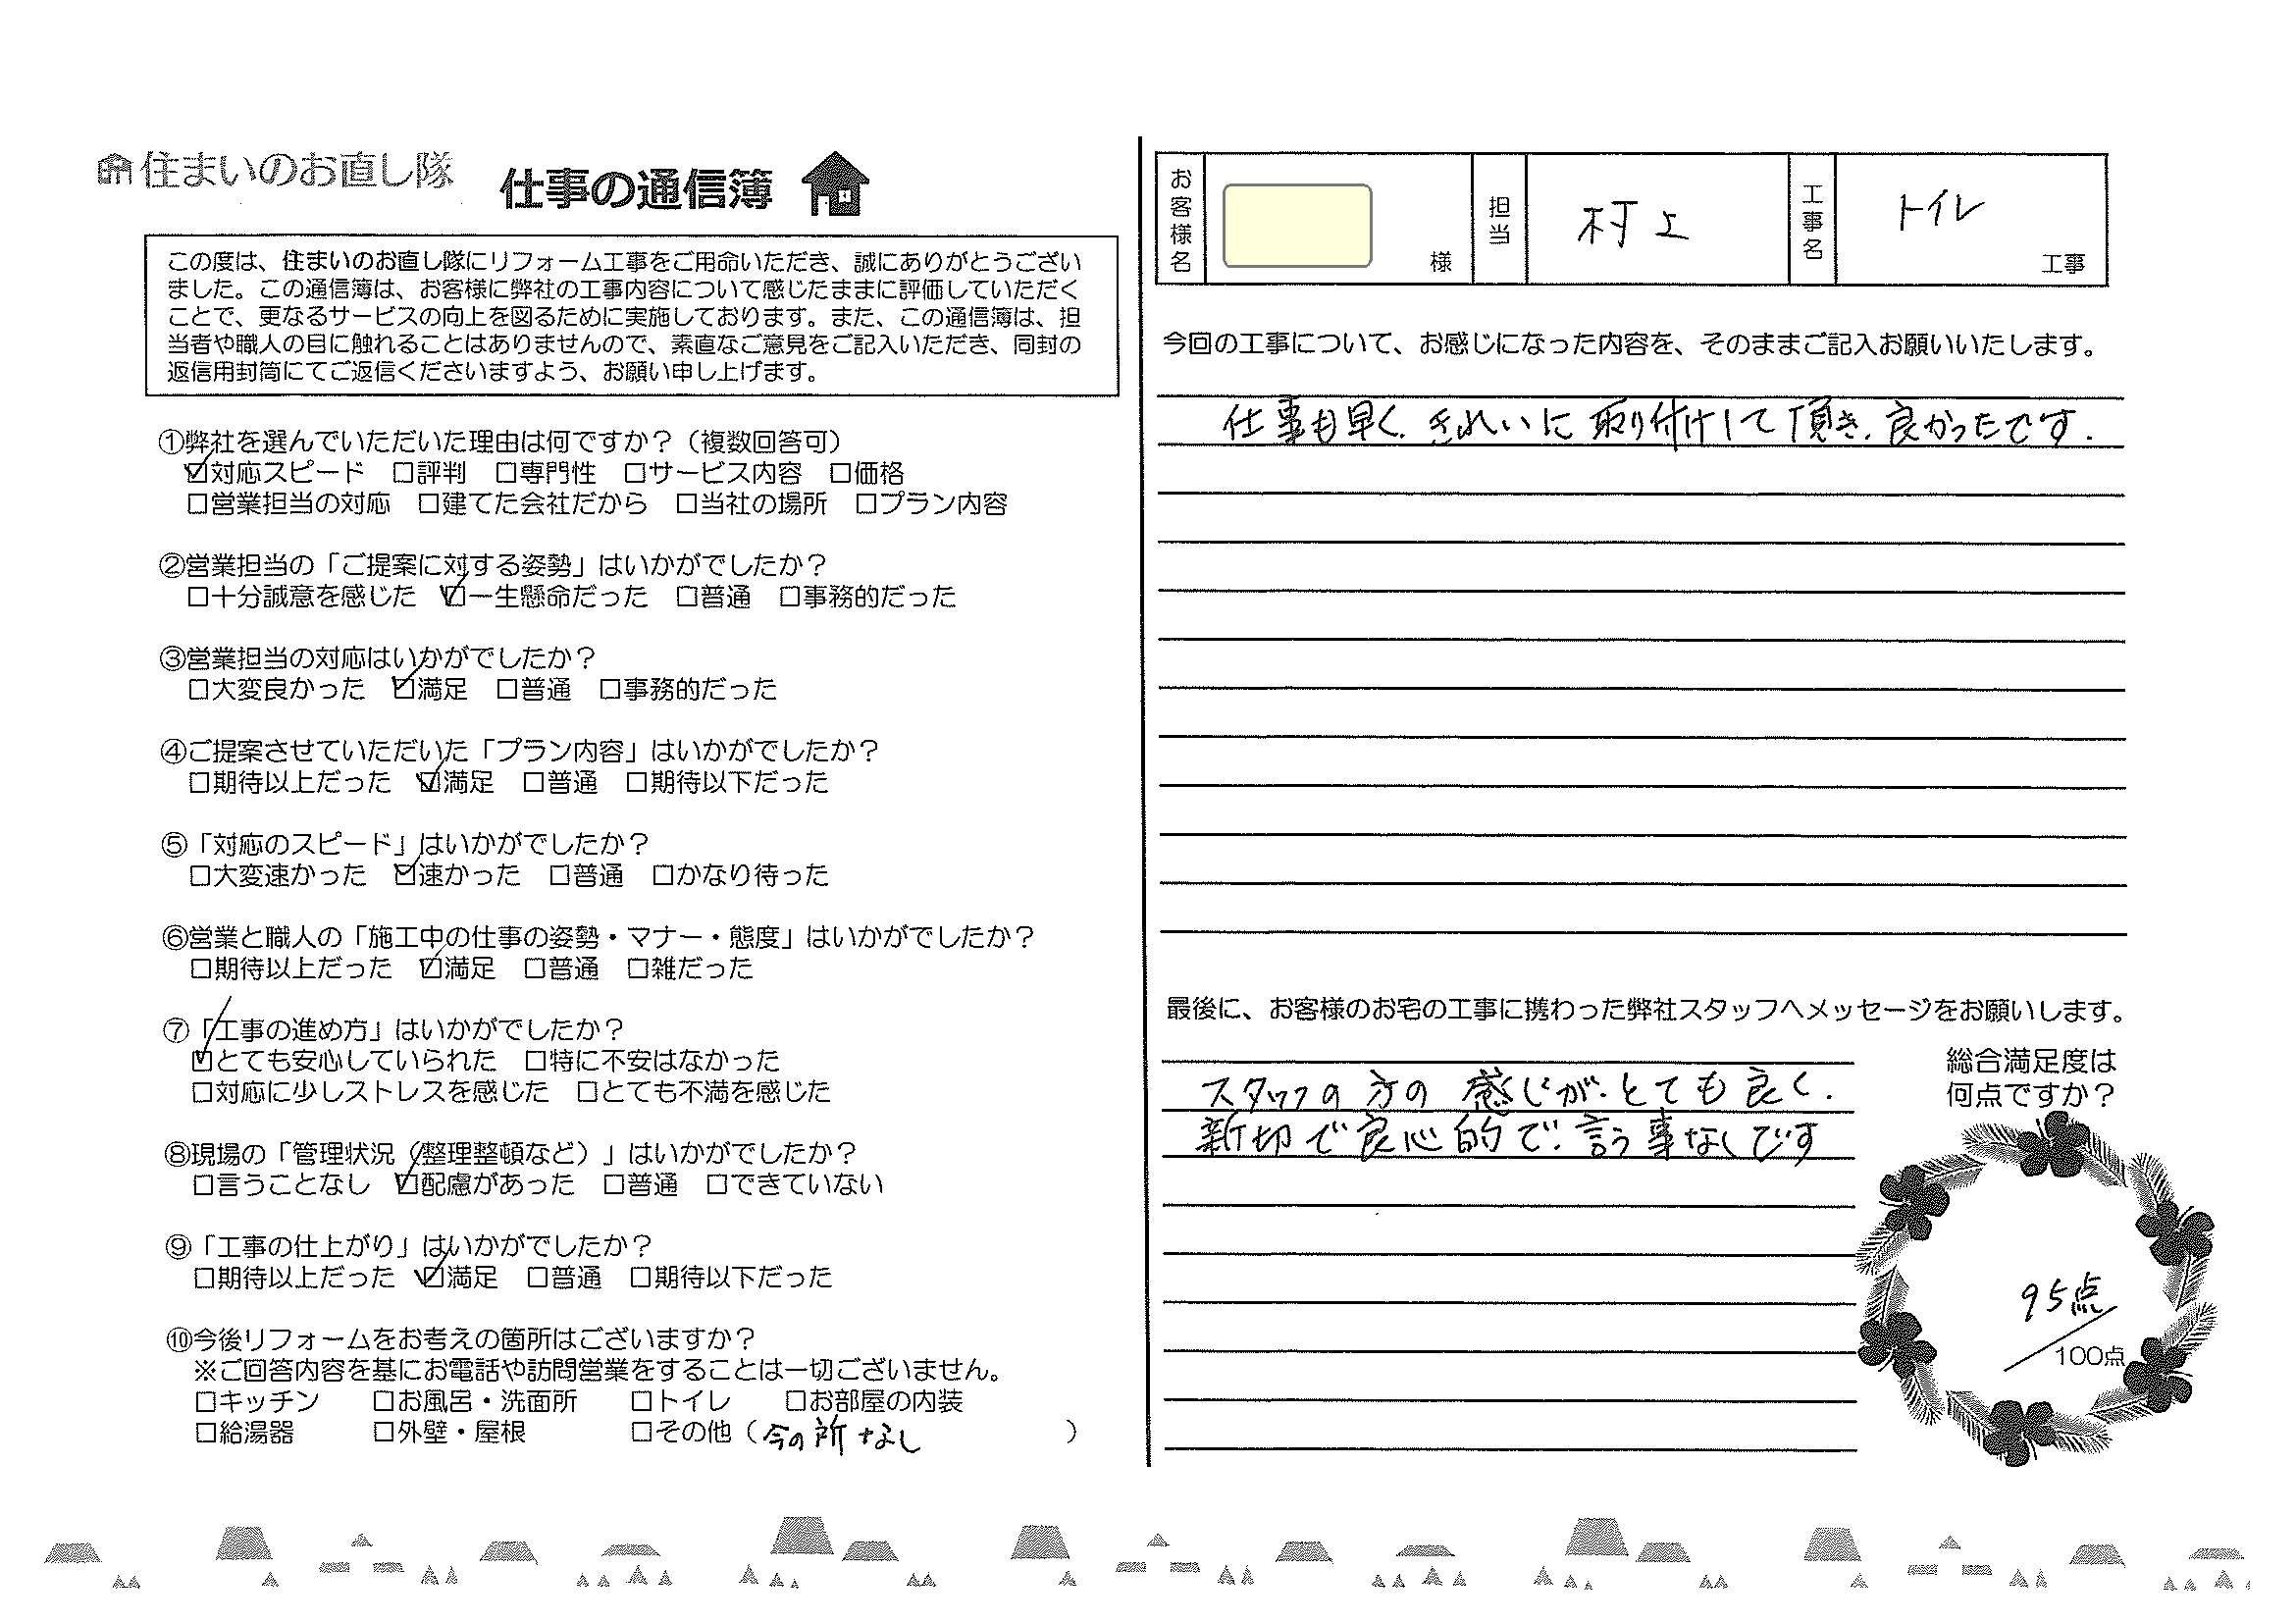 住まいのお直し隊
仕事の通信簿
この度は、住まいのお直し隊にリフォーム工事をご用命いただき、誠にありがとうござい
ました。この通信簿は、お客様に弊社の工事内容について感じたままに評価していただく
ことで、更なるサービスの向上を図るために実施しております。また、この通信簿は、担
当者や職人の目に触れることはありませんので、素直なご意見をご記入いただき、同封の
返信用封筒にてご返信くださいますよう、お願い申し上げます。
①弊社を選んでいただいた理由は何ですか？（複数回答可）
☑対応スピード　□評判　□専門性　□サービス内容　□価格
□営業担当の対応　□建てた会社だから　□当社の場所　□プラン内容
②営業担当の「ご提案に対する姿勢」はいかがでしたか？
□十分誠意を感じた　☑一生懸命だった　□普通　□事務的だった
③営業担当の対応はいかがでしたか？
□大変良かった　☑満足　□普通　□事務的だった
④ご提案させていただいた「プラン内容」はいかがでしたか？
□期待以上だった　☑満足　□普通　□期待以下だった
⑤「対応のスピード」はいかがでしたか？
□大変速かった　☑速かった　□普通　□かなり待った
⑥営業と職人の「施工中の仕事の姿勢・マナー・態度」はいかがでしたか？
□期待以上だった　☑満足　□普通　□雑だった
⑦「工事の進め方」はいかがでしたか？
☑とても安心していられた　□特に不安はなかった
□対応に少しストレスを感じた　□とても不満を感じた
⑧現場の「管理状況（整理整頓など）」はいかがでしたか？
□言うことなし　☑配慮があった　□普通　□できていない
⑨「工事の仕上がり」はいかがでしたか？
□期待以上だった　☑満足　□普通　□期待以下だった
⑩今後リフォームをお考えの箇所はございますか？
※ご回答内容を基にお電話や訪問営業をすることは一切ございません。
□キッチン　□お風呂・洗面所　□トイレ　□お部屋の内装
□給湯器　□外壁・屋根　□その他（今の所なし）
お客様名　様　担当　村上　工事名　トイレ　工事
今回の工事について、お感じになった内容を、そのままご記入お願いいたします。
仕事も早く、きれいに取り付けして頂き、良かったです.
最後に、お客様のお宅の工事に携わった弊社スタッフへメッセージをお願いします。
スタッフの方の感じが、とても良く.
新切で良心的で、言う事なしです
総合満足度は
何点ですか？
95点
100点